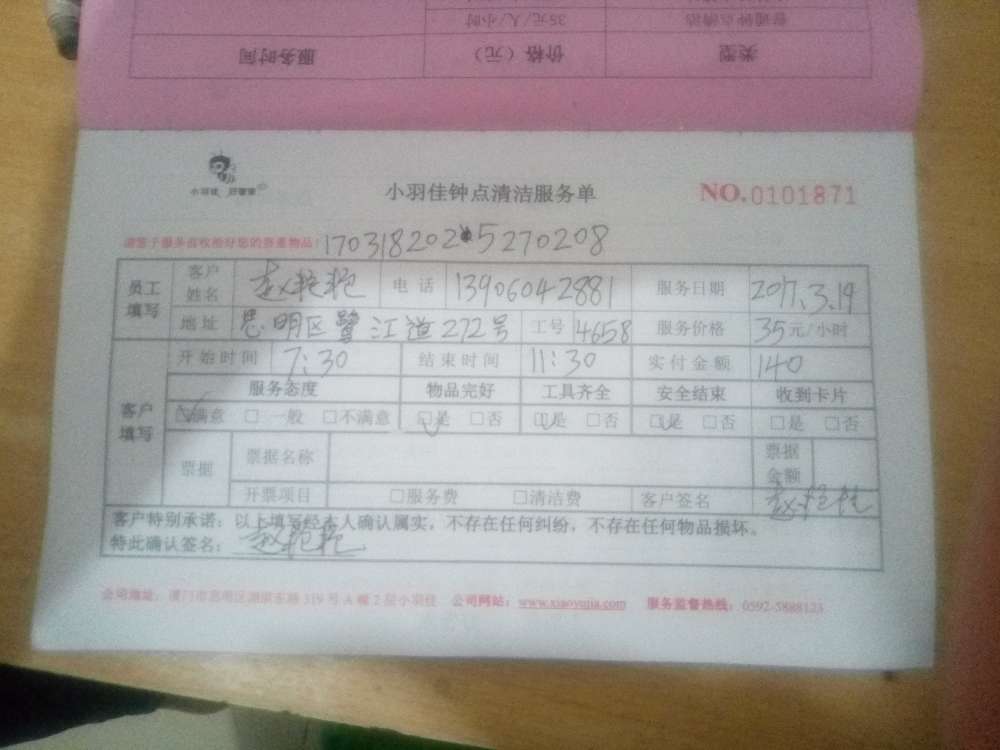 普通钟点清洁 35元/人/小时
类型 价格（元） 服务时间
小羽佳 好管家
小羽佳钟点清洁服务单 NO.0101871
170318202 5270208
员工填写 客户姓名 赵艳艳 电话 13906042881 服务日期 2017.3.19
地址 思明区鹭江道272号 工号 4658 服务价格 35元/小时
客户填写 开始时间 7:30 结束时间 11:30 实付金额 140
服务态度 物品完好 工具齐全 安全结束 收到卡片
☑满意 □一般 □不满意 ☑是 □否 ☑是 □否 ☑是 □否 □是 □否
票据 票据名称 票据金额
开票项目 □服务费 □清洁费 客户签名 赵艳艳
客户特别承诺：以上填写经本人确认属实，不存在任何纠纷，不存在任何物品损坏。
特此确认签名：赵艳艳
公司地址：厦门市思明区湖滨东路319号A幢2层小羽佳 公司网站：www.xiaoyujia.com 服务监督热线：0592-5888123